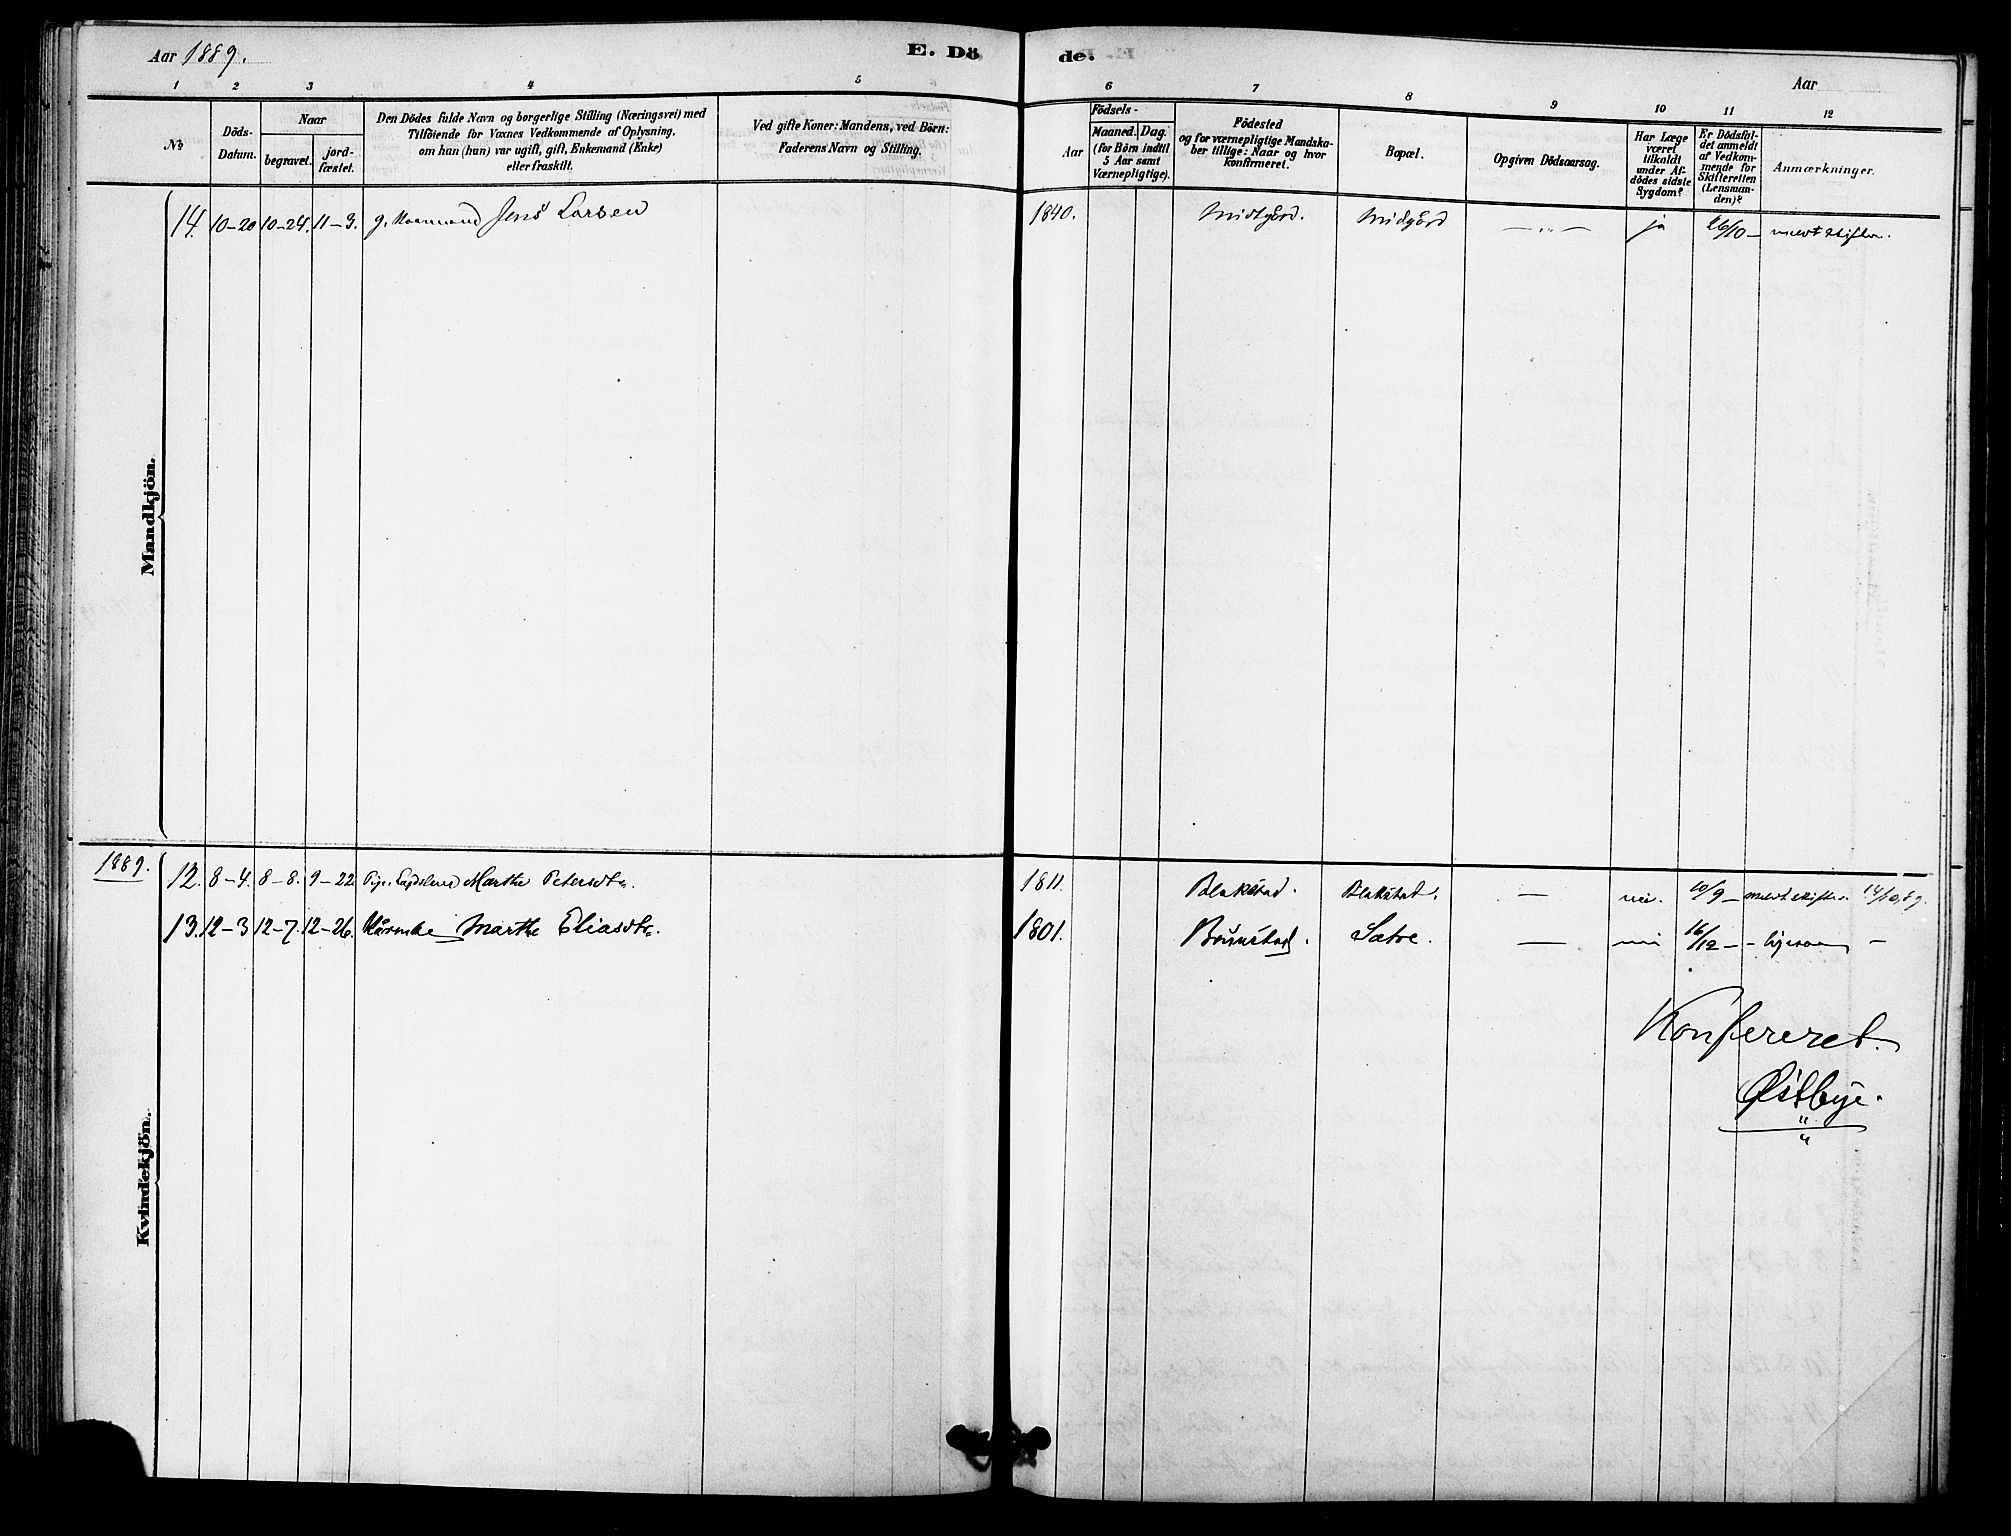 Aar 1889.
E. Dö
de.
Aar
1 2 3 4 5 6 7 8 9 10 11 12
No
Döds-
Datum.
Naar
begravet.
jord-
fæstet.
Den Dödes fulde Navn og borgerlige Stilling (Næringsvei) med
Tilföiende for Voxnes Vedkommende af Oplysning,
om han (hun) var ugift, gift, Enkemand (Enke)
eller fraskilt.
Ved gifte Koner: Mandens, ved Börn:
Faderens Navn og Stilling.
Födsels-
Aar
Maaned. Dag.
(for Börn indtil
5 Aar samt
Værnepligtige).
Födested
og for værnepligtige Mandska-
ber tillige: Naar og hvor
konfirmeret.
Bopæl.
Opgiven Dödsaarsag.
Har Læge
været
tilkaldt
under Af-
dödes sidste
Sygdom?
Er Dödsfal-
det anmeldt
af Vedkom-
mende for
Skifteretten
(Lensman-
den)?
Anmærkninger.
Mandkjön.
14. 10-20 10-24. 11-3. g. Jens Larsen 1840. Midtgård. Midgård — „ — ja 26/10 -
1889.
12. 8-4. 8-8. 9-22 Marthe Petersdtr. 1811. Blakstad. Blakstad. — nei. 10/9 -
13. 12-3 12-7. 12-26. Marthe Eliasdtr. 1801. Sætre. — nei 16/12 - -
Kvindekjön.
Konfereret.
Østbye.